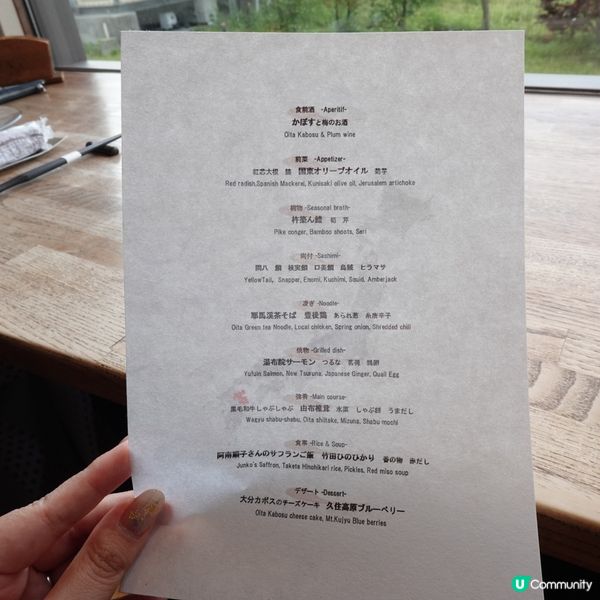 食前酒 -Aperitif-
かぼすと梅のお酒
Oita Kabosu & Plum wine
前菜 -Appetizer-
紅芯大根 鰆 国東オリーブオイル 菊芋
Red radish,Spanish Mackerel, Kunisaki olive oil, Jerusalem artichoke
椀物 -Seasonal broth-
杵築ん鱧 筍 芹
Pike conger, Bamboo shoots, Seri
向付 -Sashimi-
間八 鯛 口美鯛 烏賊 ヒラマサ
YellowTail, Snapper, Enomi, Kuchimi, Squid, Amberjack
凌ぎ -Noodle-
耶馬溪茶そば 豊後鶏 あられ葱 糸唐辛子
Oita Green tea Noodle, Local chicken, Spring onion, Shredded chili
焼物 -Grilled dish-
湯布院サーモン つるな 茗荷 鶉卵
Yufuin Salmon, New Tsuruna, Japanese Ginger, Quail Egg
強肴 -Main course-
黒毛和牛しゃぶしゃぶ 由布椎茸 水菜 しゃぶ餅 うまだし
Wagyu shabu-shabu, Oita shiitake, Mizuna, Shabu mochi
食事 -Rice & Soup-
阿南順子さんのサフランご飯 竹田ひのひかり 香の物 赤だし
Junko's Saffron, Taketa Hinohikari rice, Pickles, Red miso soup
デザート -Dessert-
大分カボスのチーズケーキ 久住高原ブルーベリー
Oita Kabosu cheese cake, Mt.Kujyu Blue berries
U Community